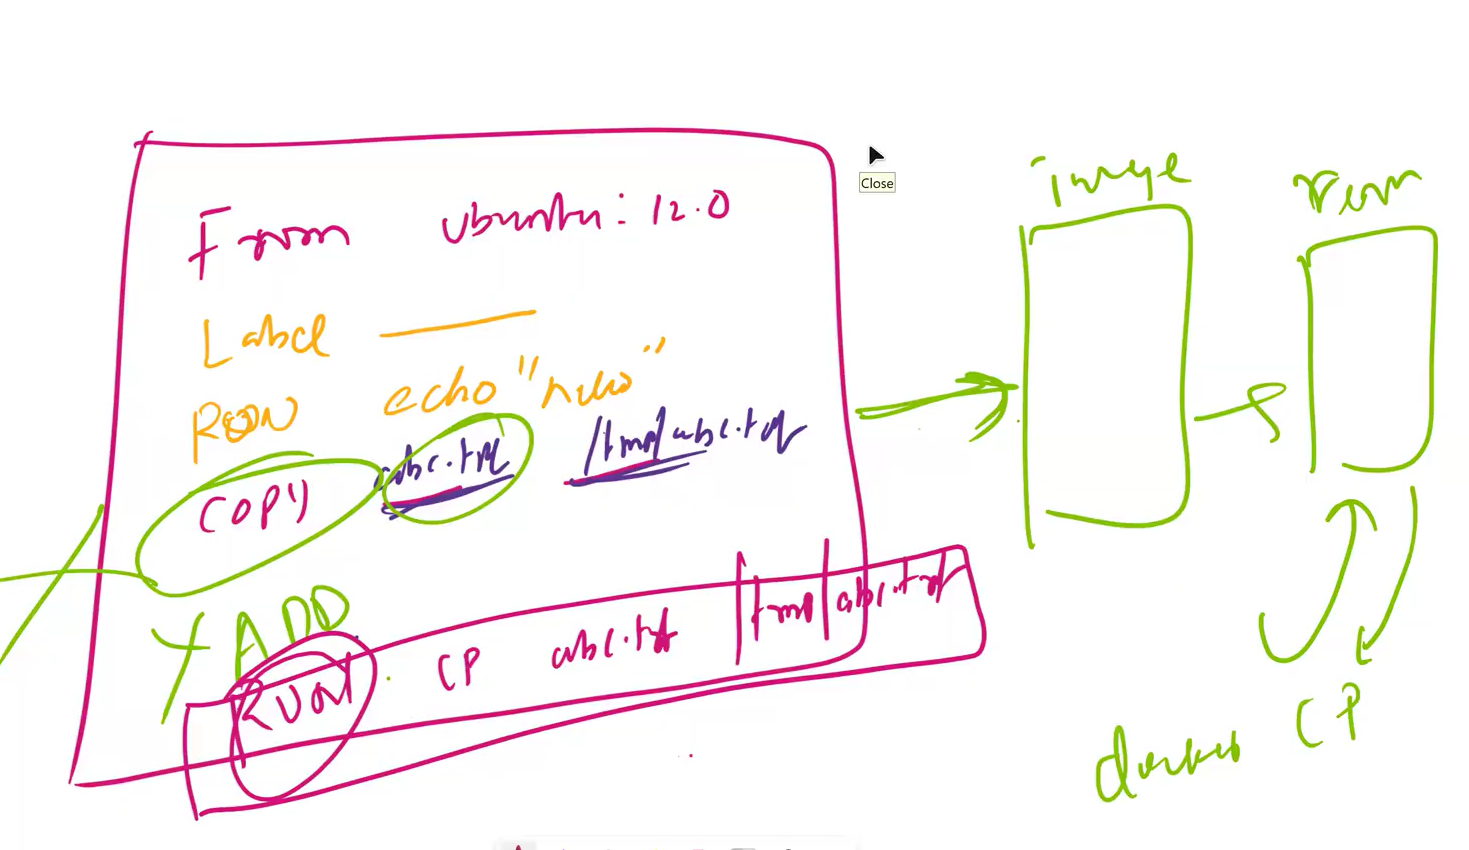 From ubuntu: 12.0
Label
RUN echo "hello"
COPY abc.txt /tmp/abc.txt
ADD
RUN cp abc.txt /tmp/abc.txt
Close
image
run
docker CP